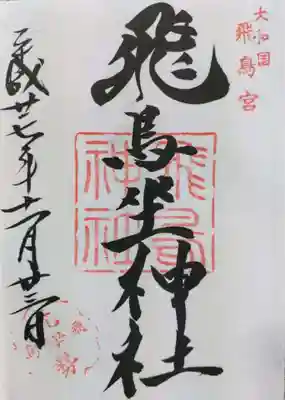 大和国
飛鳥宮
飛鳥坐神社
飛鳥
神社
平成廿七年十一月廿三日